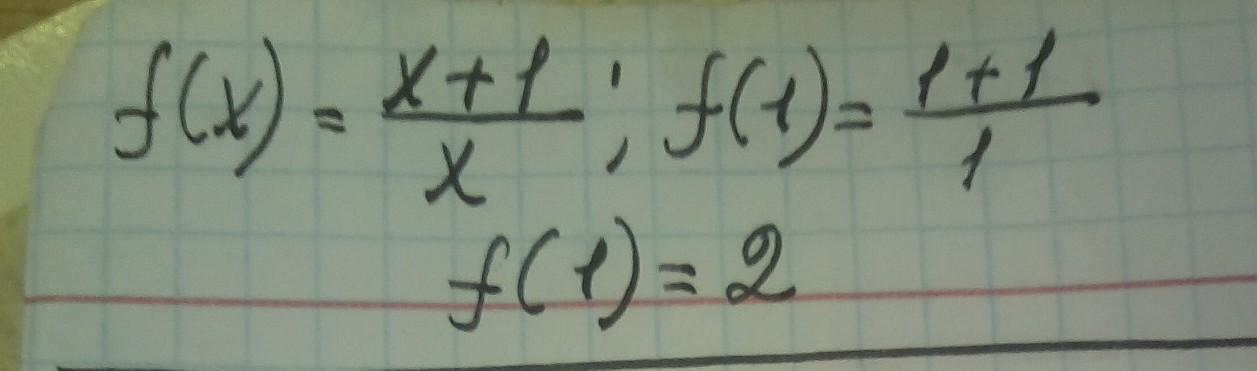 f(x) = \frac{x+1}{x} ; f(1) = \frac{1+1}{1}
f(1) = 2